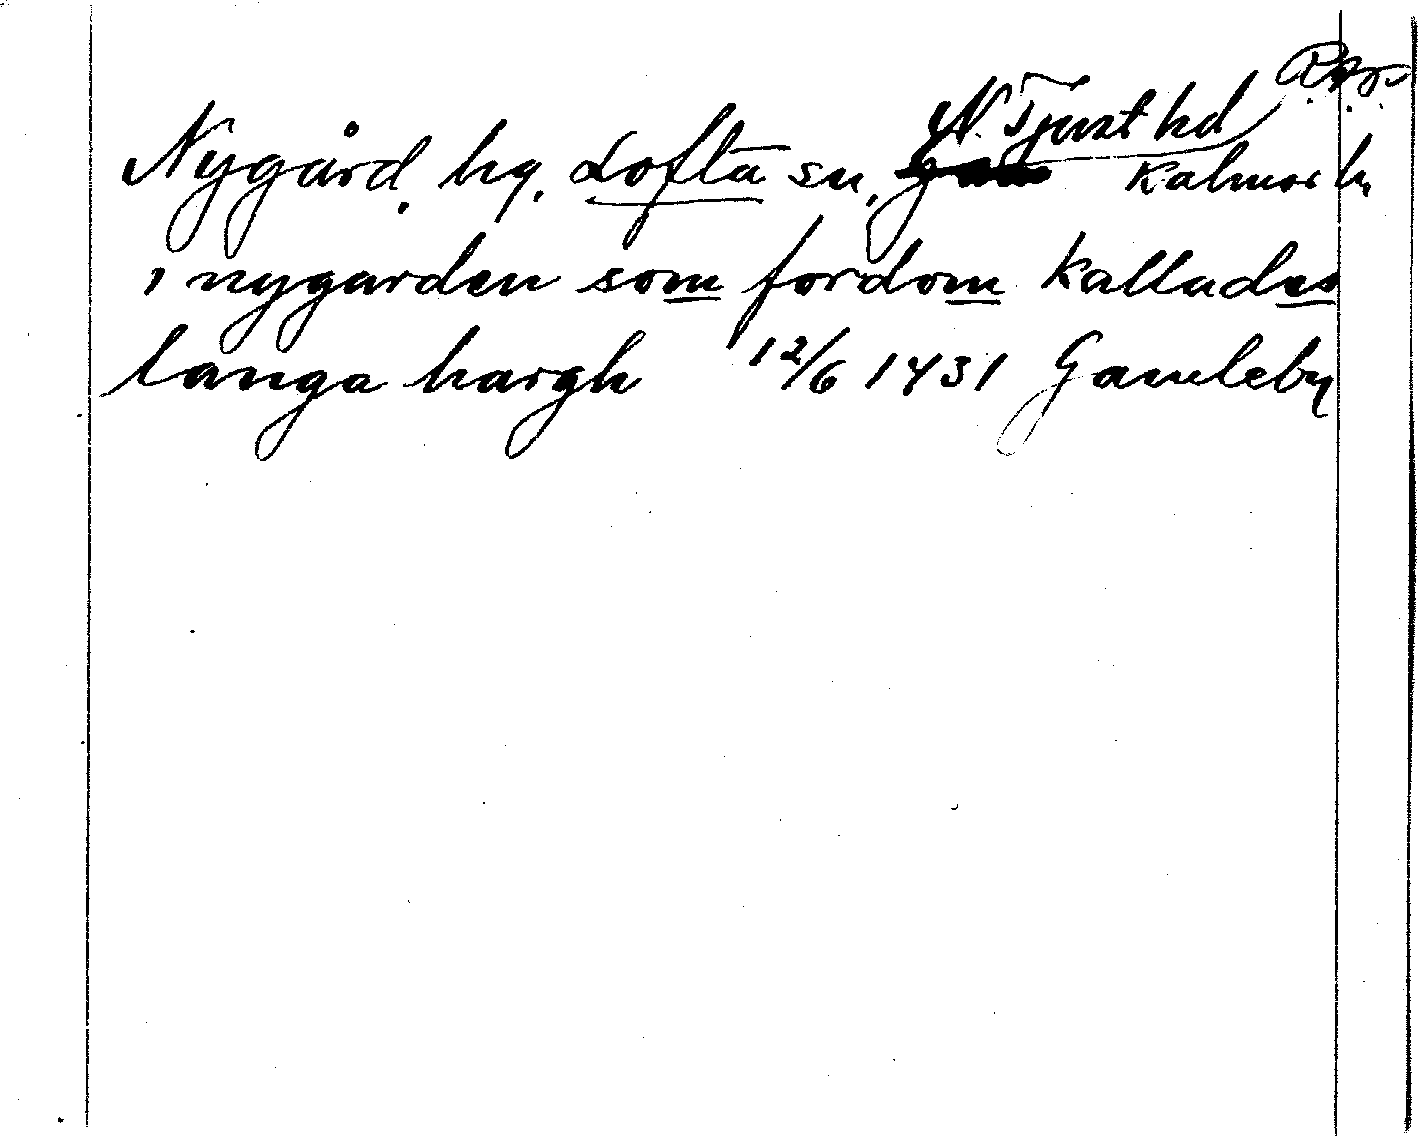 N Tjust hd
Nygård, hg. Lofta sn, Kalmar l.
i nygarden som fordom kallades
langa hargh 12/6 1431 Gamleby